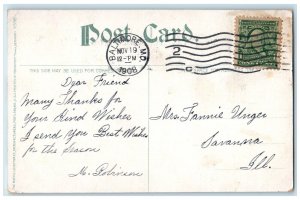 Post Card
BALTIMORE, MD.
NOV 19
12-PM
1908
2
THIS SIDE MAY BE USED FOR
Dear Friend
Many Thanks for
Your Kind Wishes
I send you Best Wishes
for the season
M. Robinson
Mrs. Fannie Unger
Savanna
Ill.